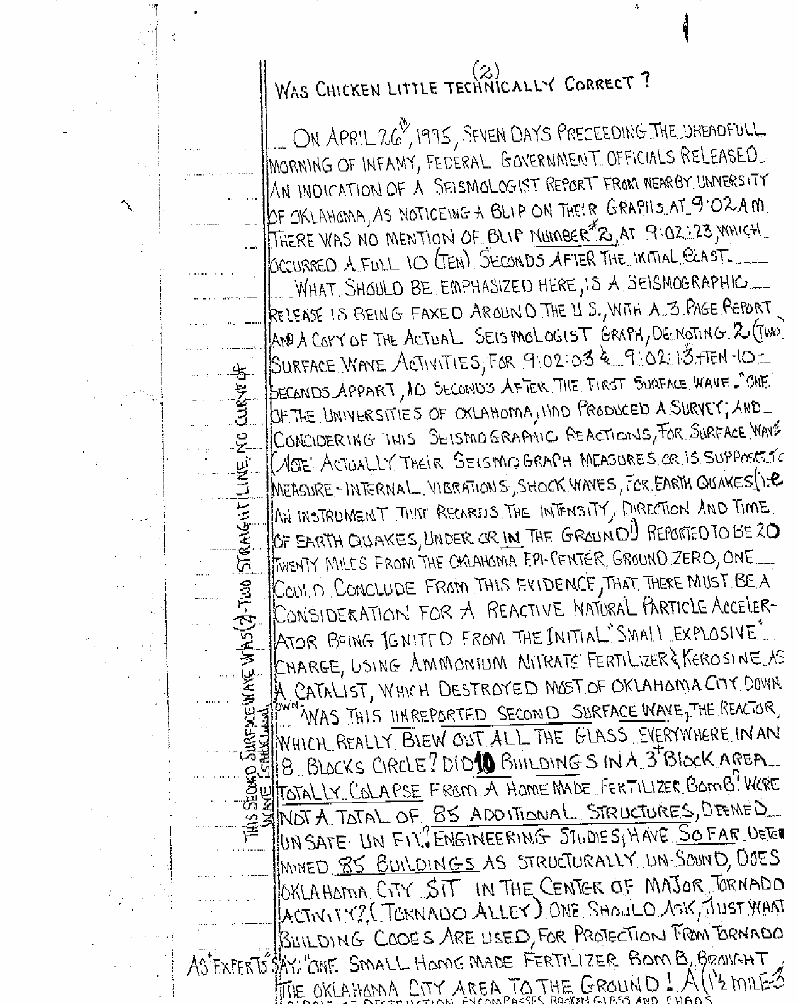 (2)
WAS CHICKEN LITTLE TECHNICALLY CORRECT ?
ON APRIL 26th, 1995, SEVEN DAYS PRECEEDING THE DREADFULL
MORNING OF INFAMY, FEDERAL GOVERNMENT OFFICIALS RELEASED
AN INDICATION OF A SEISMOLOGIST REPORT FROM NEARBY UNIVERSITY
OF OKLAHOMA, AS NOTICEING A BLIP ON THEIR GRAPHS AT 9:02 AM
THERE WAS NO MENTION OF BLIP NUMBER #2, AT 9:02:23, WHICH
OCCURRED A FULL 10 (TEN) SECONDS AFTER THE INITIAL BLAST.
WHAT SHOULD BE EMPHASIZED HERE, IS A SEISMOGRAPHIC
RELEASE IS BEING FAXED AROUND THE U.S., WITH A 3 PAGE REPORT
AND A COPY OF THE ACTUAL SEISMOLOGIST GRAPH, DENOTING 2 (TWO)
SURFACE WAVE ACTIVITIES, FOR 9:02:03 & 9:02:13 +TEN-10-
SECONDS APPART, 10 SECONDS AFTER THE FIRST SURFACE WAVE. "ONE
OF THE UNIVERSITIES OF OKLAHOMA, HAD PRODUCED A SURVEY; AND
CONCIDERING THIS SEISMOGRAPHIC REACTIONS, FOR SURFACE WAVE
(NOTE: ACTUALLY THEIR SEISMOGRAPH MEASURES OR IS SUPPOSE TO
MEASURE - INTERNAL VIBRATIONS, SHOCK WAVES, FOR EARTH QUAKES (i.e
AN INSTRUMENT THAT REGARDS THE INTENSITY, DIRECTION AND TIME
OF EARTH QUAKES, UNDER OR IN THE GROUND!) REPORTED TO BE 20
TWENTY MILES FROM THE OKLAHOMA EPI-CENTER GROUND ZERO, ONE
COULD CONCLUDE FROM THIS EVIDENCE, THAT THERE MUST BE A
CONSIDERATION FOR A REACTIVE NATURAL PARTICLE ACCELER-
ATOR BEING IGNITED FROM THE INITIAL "SMALL EXPLOSIVE"
CHARGE, USING AMMONIUM NITRATE FERTILIZER & KEROSINE AS
A CATALIST, WHICH DESTROYED MOST OF OKLAHOMA CITY DOWN
OWN. "WAS THIS UNREPORTED SECOND SURFACE WAVE, THE REACTOR,
WHICH REALLY BLEW OUT ALL THE GLASS EVERYWHERE IN AN
8 BLOCKS CIRCLE? DID 10 BUILDINGS IN A 3+ BLOCK AREA
TOTALLY COLAPSE FROM A HOME MADE FERTILIZER BOMB? WERE
NOT A TOTAL OF 85 ADDITIONAL STRUCTURES, DEEMED
UNSAFE UN FIT? ENGINEERING STUDIES, HAVE SO FAR DETER
MINED 85 BUILDINGS AS STRUCTURALLY UN-SOUND, DOES
OKLAHOMA CITY SIT IN THE CENTER OF MAJOR TORNADO
ACTIVITY?, (TORNADO ALLEY) ONE SHOULD ASK, JUST WHAT
BUILDING CODES ARE USED, FOR PROTECTION FROM TORNADO
AS "EXPERTS" SAY: "ONE SMALL HOME MADE FERTILIZER BOMB, BROUGHT
THE OKLAHOMA CITY AREA TO THE GROUND! A (1½ MILES
OF DESTRUCTION ENCOMPASSES BROKEN GLASS AND CHAOS
THIS SECOND SURFACE WAVE WAS (2) - TWO STRAIGHT LINE, NO CURVE OF